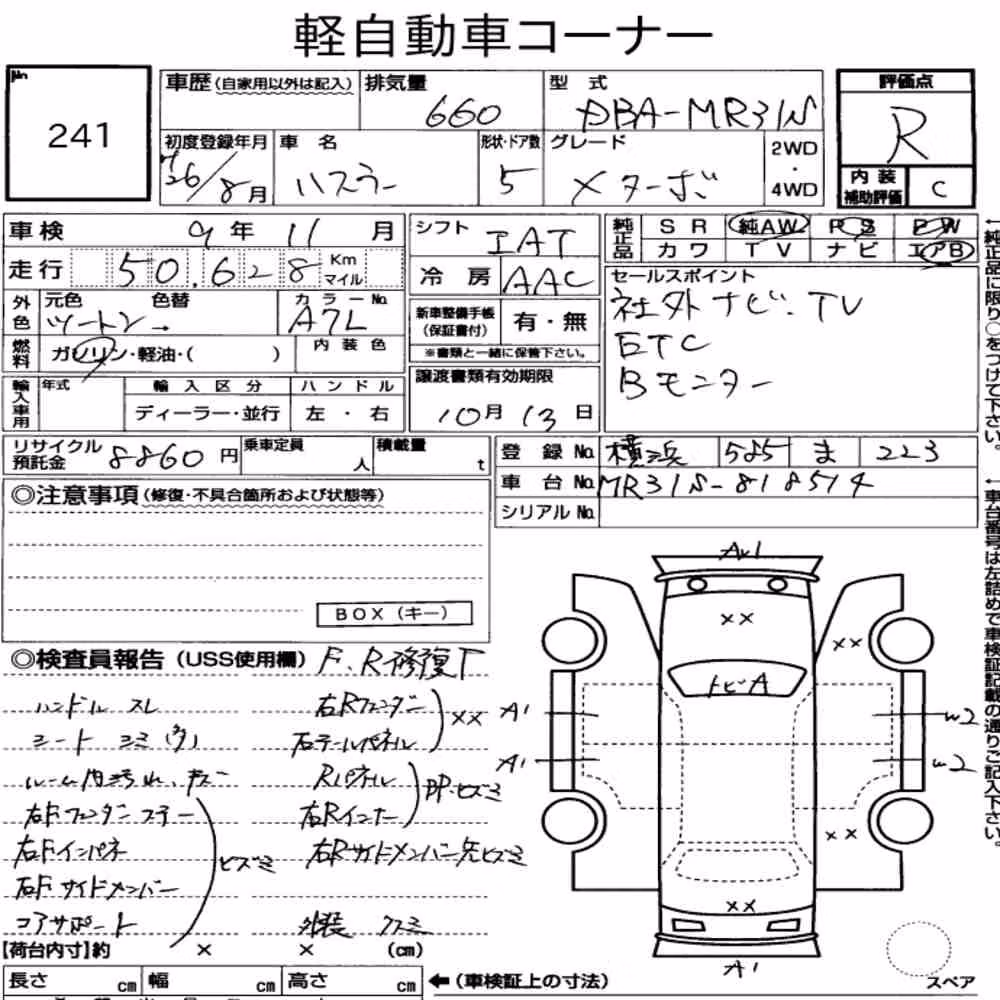 軽自動車コーナー
No.
241
車歴(自家用以外は記入)
排気量
660
型 式
DBA-MR31S
評価点
R
初度登録年月
H26/8月
車 名
ハスラー
形状・ドア数
5
グレード
Xターボ
2WD
・
4WD
内装
補助評価
C
車検 9年 11月
走行 50,628 Km マイル
外色
元色 色替
ツートン→
カラーNo.
A7L
燃料
ガソリン・軽油・( )
内装色
輸入車用
年式
輸入区分
ハンドル
ディーラー・並行
左・右
シフト
IAT
冷房
AAC
新車整備手帳
(保証書付)
有・無
※書類と一緒に保管下さい。
譲渡書類有効期限
10月13日
純正品
SR 純AW PS PW
カワ TV ナビ エアB
セールスポイント
社外ナビ・TV
ETC
Bモニター
←純正品に限り○をつけて下さい。
リサイクル
預託金
8860円
乗車定員
人
積載量
t
登録No. 横浜 585 ま 223
車台No. MR31S-818514
シリアルNo.
←車台番号は左詰めで車検証記載の通りご記入下さい。
◎注意事項(修復・不具合箇所および状態等)
BOX(キー)
◎検査員報告(USS使用欄) F、R修復下
ハンドル スレ
シート シミ(多)
ルーム内汚れ、キズ
右Fフェンダーステー
右Fインパネ
右Fサイドメンバー
コアサポート
ヒズミ
右Rフェンダー
右テールパネル
××
Rパネル
右Rインナー
PP・ヒズミ
右Rサイドメンバー先ヒズミ
外装 クスミ
【荷台内寸】約 × × (cm)
長さ cm 幅 cm 高さ cm
←(車検証上の寸法)
A1
××
××
トビA
A1
A1
W2
W2
××
××
A1
スペア